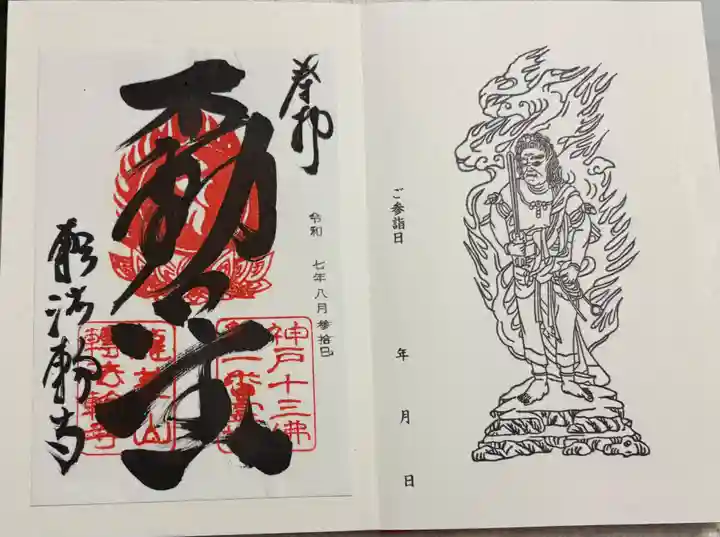 ご参詣日
年
月
日
奉拝
令和 七年八月参拾日
不動明王
神戸十三佛
第一番霊場
轉法輪寺
轉法輪寺